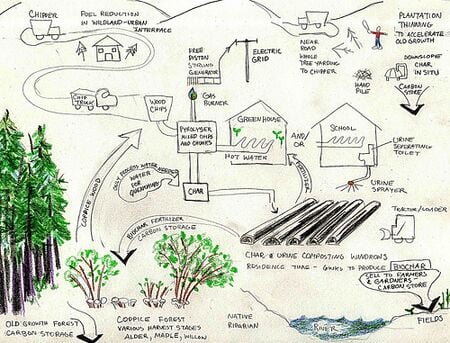 CHIPPER
FUEL REDUCTION
IN WILDLAND-URBAN
INTERFACE
FREE
PISTON
STIRLING
GENERATOR
ELECTRIC
GRID
NEAR
ROAD
WHOLE
TREE YARDING
TO CHIPPER
PLANTATION
THINNING
TO ACCELERATE
OLD GROWTH
DOWNSLOPE
CHAR
IN SITU
HAND
PILE
CARBON
STORE
CHIP
TRUCK
WOOD
CHIPS
GAS
BURNER
PYROLYSER
MIXED CHIPS
AND CHUNKS
GREENHOUSE
HOT WATER
AND/
OR
SCHOOL
URINE
SEPARATING
TOILET
FERTILIZER
WATER
FOR
CHAR
URINE
SPRAYER
COPPICE WOOD
BIOCHAR FERTILIZER
CARBON STORAGE
TRACTOR/LOADER
CHAR & URINE COMPOSTING WINDROWS
RESIDENCE TIME -
TO PRODUCE BIOCHAR
SELL TO FARMERS
& GARDNERS-
CARBON STORE
OLD GROWTH FOREST
CARBON STORAGE
COPPICE FOREST
VARIOUS HARVEST STAGES
ALDER, MAPLE, WILLOW
NATIVE
RIPARIAN
RIVER
FIELDS